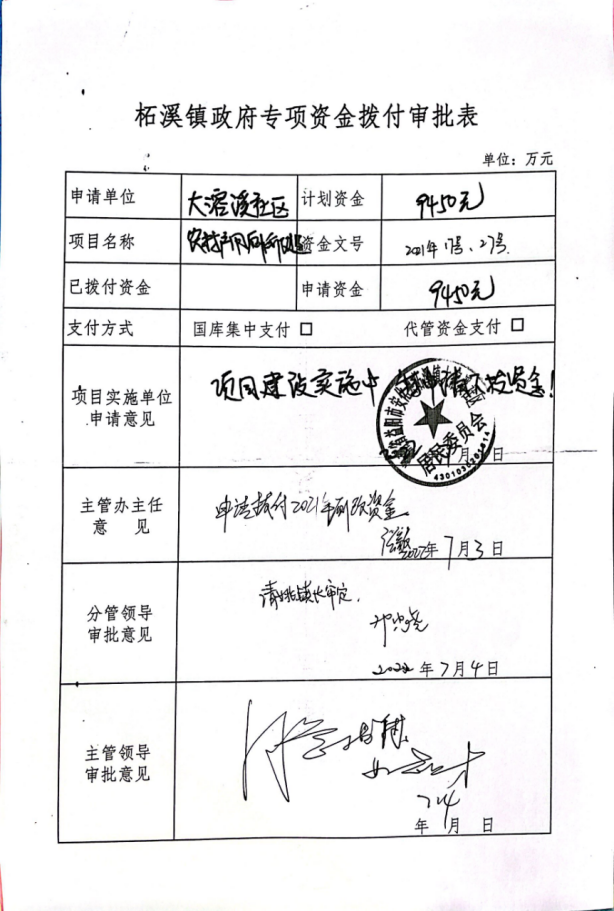 柘溪镇政府专项资金拨付审批表
单位：万元
申请单位 大溶溪社区 计划资金 9450元
项目名称 资金文号 2021年17号、27号
已拨付资金 申请资金 9450元
支付方式 国库集中支付 □ 代管资金支付 □
项目实施单位
申请意见
项目建设实施中 申请下拨资金！
居民委员会
月 日
主管办主任
意 见
申请拨付2021年财政资金
2022年7月3日
分管领导
审批意见
请姚镇长审定.
2022年7月4日
主管领导
审批意见
7 4
年 月 日